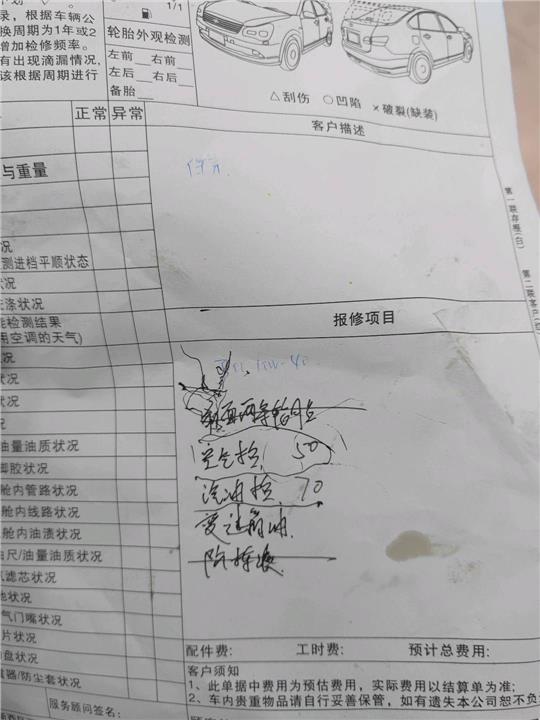 录，根据车辆公
换周期为1年或2
增加检修频率。
有出现滴漏情况，
该根据周期进行
1/1
轮胎外观检测
左前 右前
左后 右后
备胎
△刮伤 ○凹陷 ×破裂(缺装)
正常 异常
客户描述
与重量
保养
第一联存根(白)
况
测进档平顺状态
状况
去涤状况
能检测结果
用空调的天气)
报修项目
状况
状况
状况
况
油量油质状况
脚胶状况
舱内管路状况
舱内线路状况
舱内油渍状况
由尺/油量油质状况
气滤芯状况
池状况
气门嘴状况
片状况
盘状况
器/防尘套状况
空气格 50
汽油格 70
变速箱油
配件费： 工时费： 预计总费用：
客户须知
1、此单据中费用为预估费用，实际费用以结算单为准；
2、车内贵重物品请自行妥善保管，如有遗失本公司恕不负
服务顾问签名：